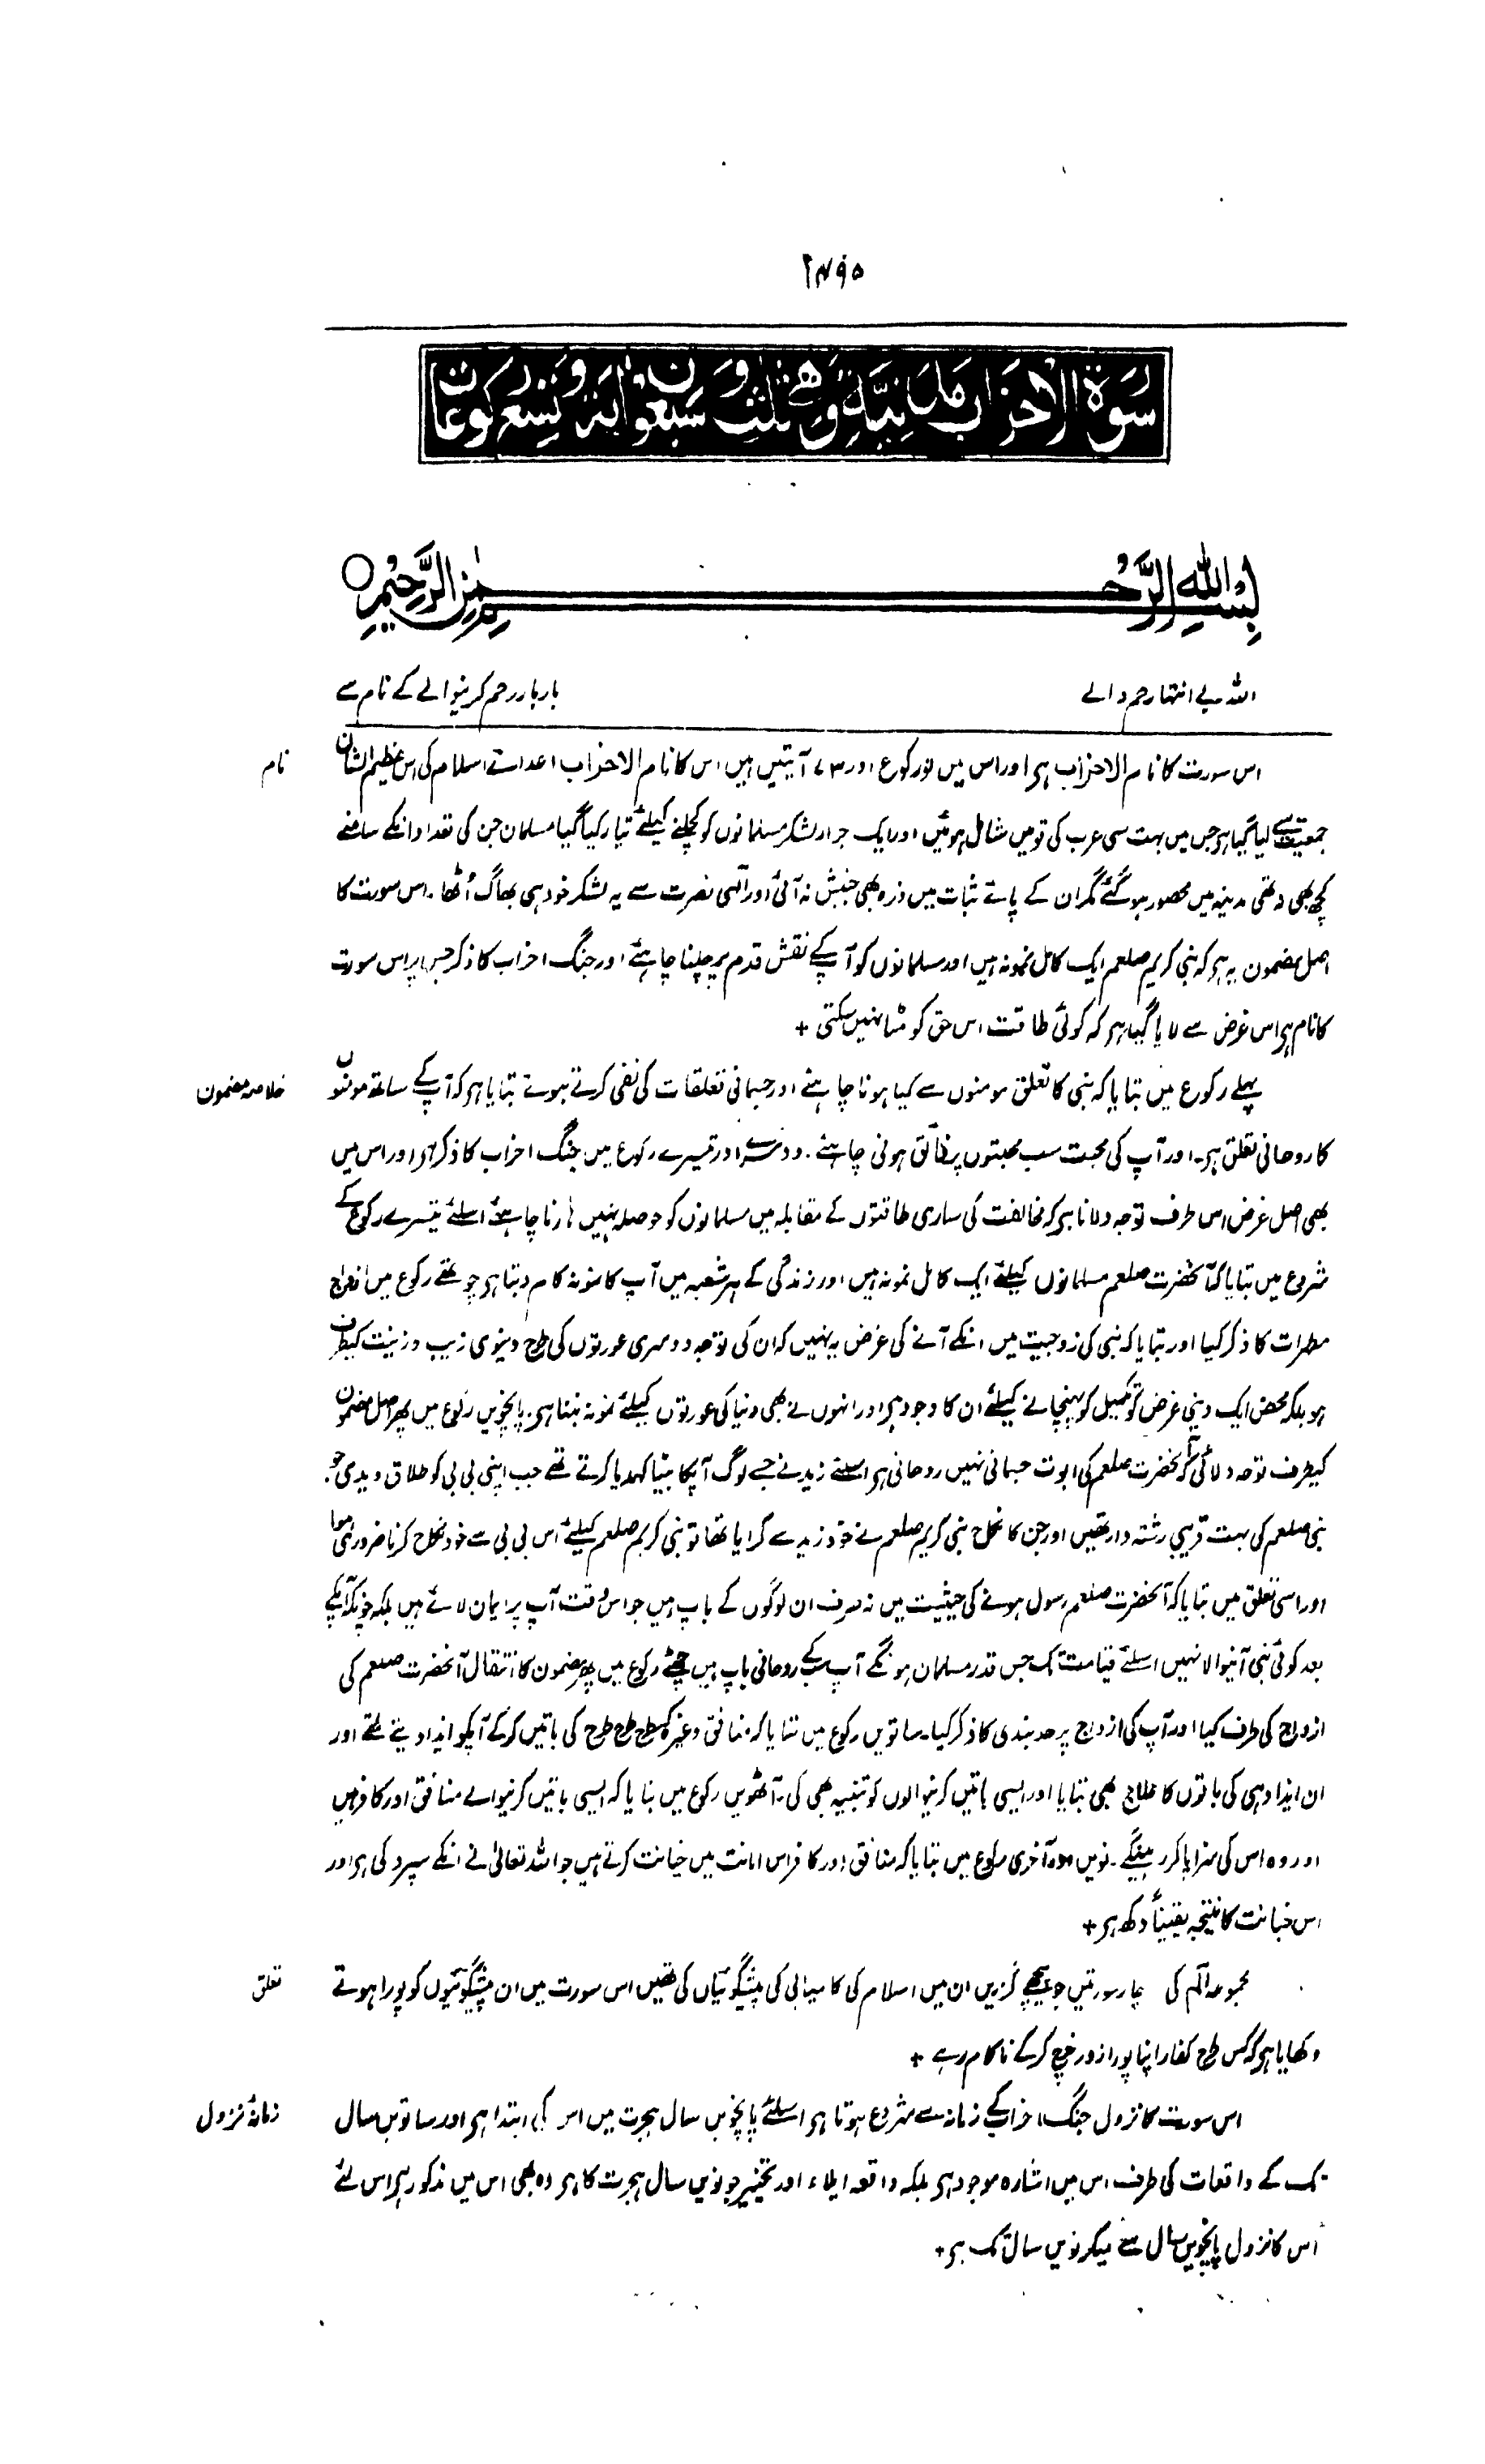 ۱۴۹۵
سورة الاحزاب مدنیة وهی ثلث وسبعون اٰیة وتسع رکوعات
بِسْمِ اللّٰهِ الرَّحْمٰنِ الرَّحِیْمِ
اللہ بے انتہا رحم والے بار بار رحم کرنیوالے کے نام سے
نام
اس سورت کا نام الاحزاب ہے اور اس میں نو رکوع اور ۷۳ آیتیں ہیں اس کا نام الاحزاب اعدائے اسلام کی اس عظیم الشان
جمعیت سے لیا گیا ہے جس میں بہت سی عرب کی قومیں شامل ہوئیں اور ایک جرار لشکر مسلمانوں کو کچلنے کیلئے تیار کیا گیا مسلمان جن کی تعداد انکے سامنے
کچھ بھی نہ تھی مدینہ میں محصور ہو گئے مگر ان کے پائے ثبات میں ذرہ بھی جنبش نہ آئی اور الٰہی نصرت سے یہ لشکر خود ہی بھاگ اُٹھا۔ اس سورت کا
اصل مضمون یہ ہے کہ نبی کریم صلعم ایک کامل نمونہ ہیں اور مسلمانوں کو آپکے نقش قدم پر چلنا چاہئے اور جنگ احزاب کا ذکر جس پر اس سورت
کا نام ہے اس غرض سے لایا گیا ہے کہ کوئی طاقت اس حق کو مٹا نہیں سکتی +
خلاصہ مضمون
پہلے رکوع میں بتایا کہ نبی کا تعلق مومنوں سے کیا ہونا چاہئے اور جسمانی تعلقات کی نفی کرتے ہوئے بتایا ہے کہ آپ کے ساتھ مومنوں
کا روحانی تعلق ہے۔ اور آپ کی محبت سب محبتوں پر فائق ہونی چاہئے۔ دوسرے اور تیسرے رکوع میں جنگ احزاب کا ذکر ہے اور اس میں
بھی اصل غرض اس طرف توجہ دلانا ہے کہ مخالفت کی ساری طاقتوں کے مقابلہ میں مسلمانوں کو حوصلہ نہیں ہارنا چاہئے اسلئے تیسرے رکوع کے
شروع میں بتایا کہ آنحضرت صلعم مسلمانوں کیلئے ایک کامل نمونہ ہیں اور زندگی کے ہر شعبہ میں آپ کا نمونہ کام دیتا ہے چوتھے رکوع میں ازواج
مطہرات کا ذکر کیا اور بتایا کہ نبی کی زوجیت میں انکے آنے کی غرض یہ نہیں کہ ان کی توجہ دوسری عورتوں کی طرح دنیوی زیب و زینت کیطرف
ہو بلکہ محض ایک دینی غرض کو تکمیل کو پہنچانے کیلئے ان کا وجود ہے اور انہوں نے بھی دنیا کی عورتوں کیلئے نمونہ بننا ہے۔ پانچویں رکوع میں پھر اصل مضمون
کیطرف توجہ دلائی کہ آنحضرت صلعم کی ابوت جسمانی نہیں روحانی ہے اسلئے زید نے جسے لوگ آپکا بیٹا کہدیا کرتے تھے جب اپنی بی بی کو طلاق دیدی جو
نبی صلعم کی بہت قریبی رشتہ دار تھیں اور جن کا نکاح نبی کریم صلعم نے خود زید سے کرایا تھا تو نبی کریم صلعم کیلئے اس بی بی سے خود نکاح کرنا ضروری ہوا
اور اسی تعلق میں بتایا کہ آنحضرت صلعم رسول ہونے کی حیثیت میں نہ صرف ان لوگوں کے باپ ہیں جو اس وقت آپ پر ایمان لائے ہیں بلکہ چونکہ آپکے
بعد کوئی نبی آنیوالا نہیں اسلئے قیامت تک جس قدر مسلمان ہونگے آپ سب کے روحانی باپ ہیں چھٹے رکوع میں پھر مضمون کا انتقال آنحضرت صلعم کی
ازواج کی طرف کیا اور آپ کی ازواج پر حد بندی کا ذکر کیا۔ ساتویں رکوع میں بتایا کہ منافق وغیرہ کس طرح طرح طرح کی باتیں کرکے آپکو ایذا دیتے تھے اور
ان ایذا دہی کی باتوں کا علاج بھی بتایا اور ایسی باتیں کرنیوالوں کو تنبیہ بھی کی۔ آٹھویں رکوع میں بتایا کہ ایسی باتیں کرنیوالے منافق اور کافر ہیں
اور وہ اس کی سزا پا کر رہینگے۔ نویں اور آخری رکوع میں بتایا کہ منافق اور کافر اس امانت میں خیانت کرتے ہیں جو اللہ تعالیٰ نے انکے سپرد کی ہے اور
اس خیانت کا نتیجہ یقیناً دکھ ہے +
تعلق
مجموعہ الٓمٓ کی چار سورتیں جو پیچھے گزریں ان میں اسلام کی کامیابی کی پیشگوئیاں کی تھیں اس سورت میں ان پیشگوئیوں کو پورا ہوتے
دکھایا ہے کہ کس طرح کفار اپنا پورا زور خرچ کرکے ناکام رہے +
زمانۂ نزول
اس سورت کا نزول جنگ احزاب کے زمانہ سے شروع ہوتا ہے اسلئے پانچویں سال ہجرت میں اس کی ابتدا ہے اور ساتویں سال
تک کے واقعات کی طرف اس میں اشارہ موجود ہے بلکہ واقعہ ایلاء اور تخییر جو نویں سال ہجرت کا ہے وہ بھی اس میں مذکور ہے اس لئے
اس کا نزول پانچویں سال سے لیکر نویں سال تک ہے +